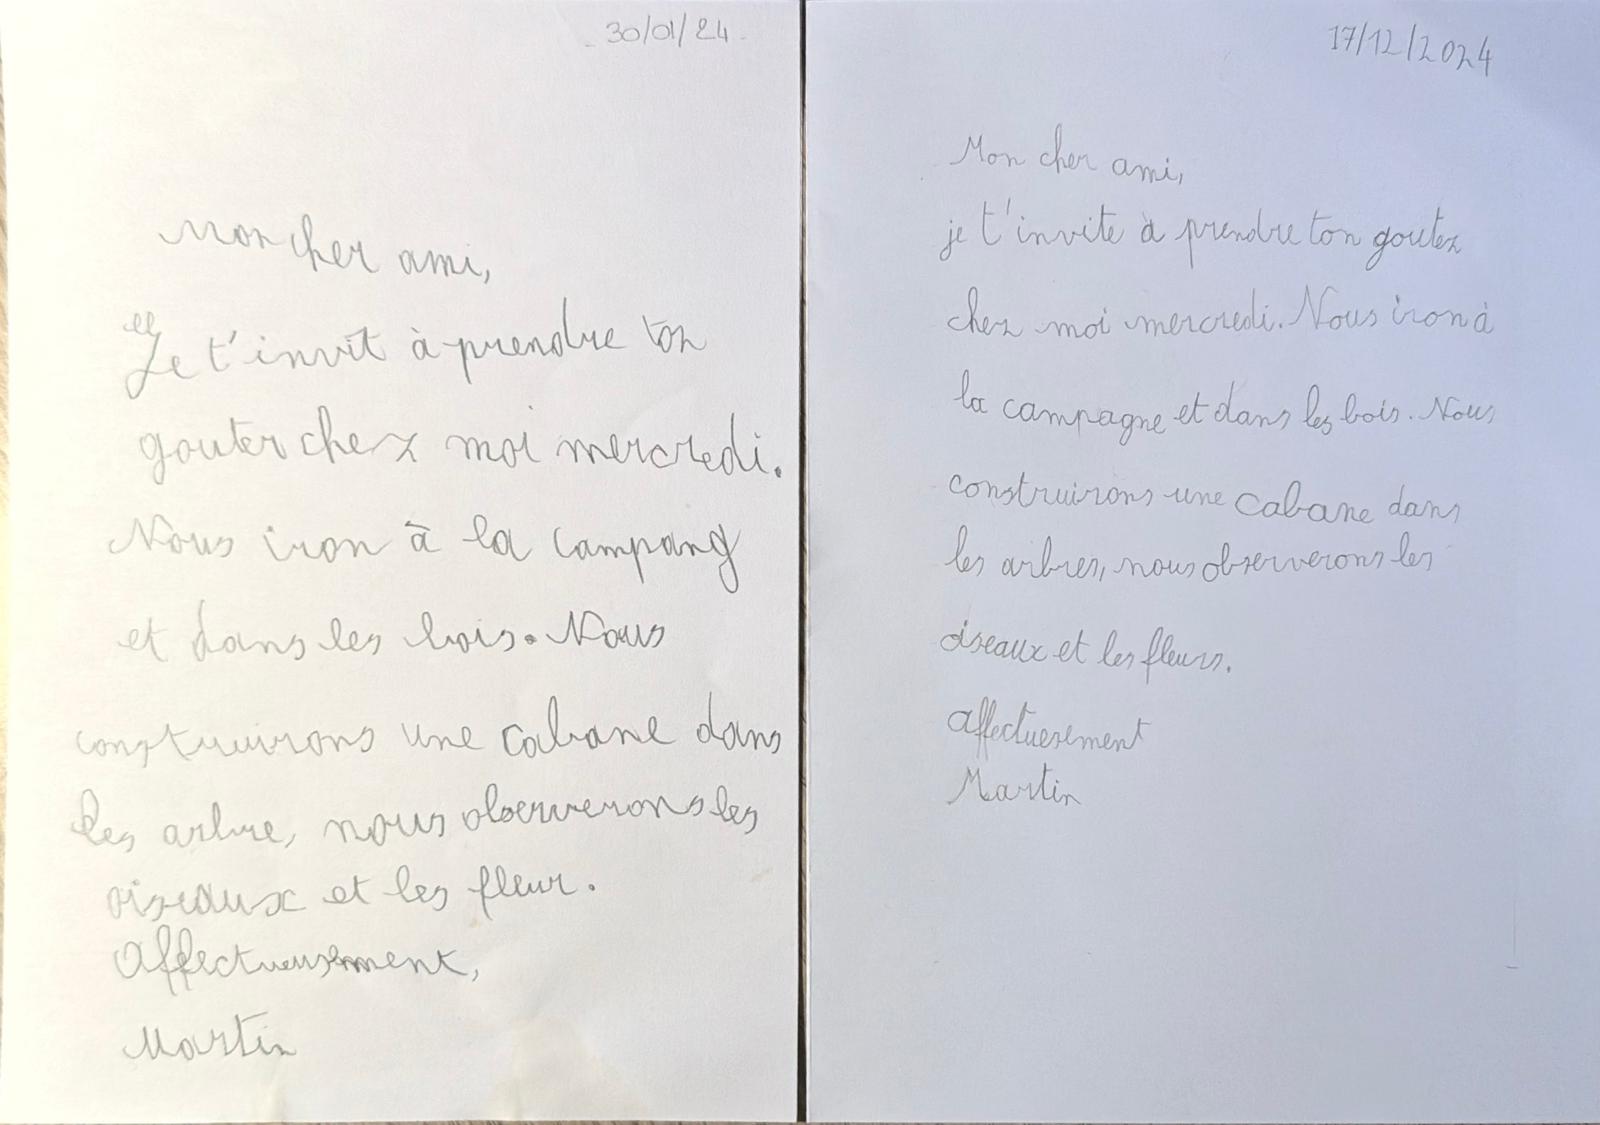 30/01/24
Mon cher ami,
Je t'invit à prendre ton
gouter chez moi mercredi.
Nous iron à la campang
et dans les bois. Nous
construirons une cabane dans
les arbre, nous observerons les
oiseaux et les fleur.
Affectueusement,
Martin
17/12/2024
Mon cher ami,
je t'invite à prendre ton goutez
chez moi mercredi. Nous iron à
la campagne et dans les bois. Nous
construirons une cabane dans
les arbres, nous observerons les
oiseaux et les fleurs.
affectuesement
Martin